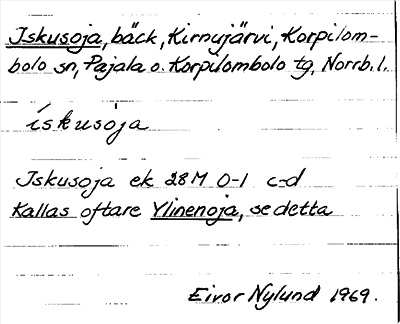 Iskusoja, bäck, Kirnujärvi, Korpilom-
bolo sn, Pajala o. Korpilombolo tg, Norrb. l.
ískusòja
Iskusoja ek 28M 0-1 c-d
Kallas oftare Ylinenoja, se detta
Eivor Nylund 1969.